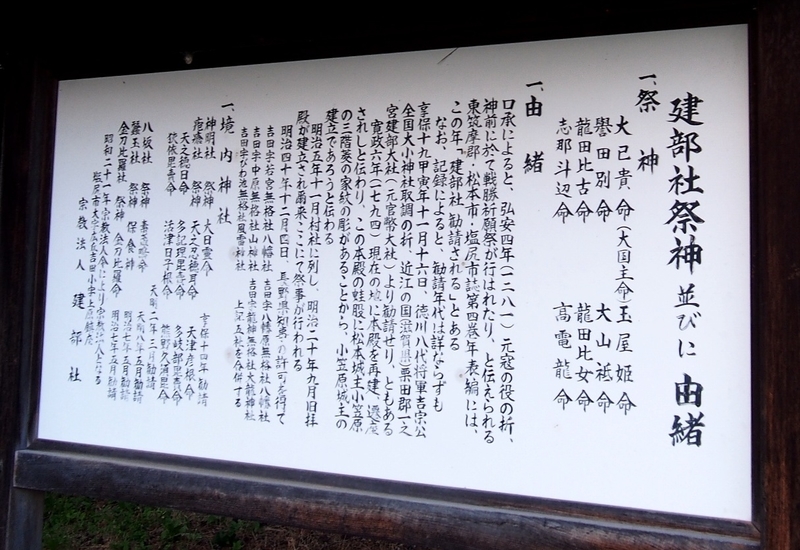 建部社祭神並びに由緒
一、祭神
大己貴命(大国主命)玉屋姫命
誉田別命 大山祗命
龍田比古命 龍田比女命
志那斗辺命 高電龍命
一、由緒
口承によると、弘安四年(一二八一)元寇の役の折、
神前に於て戦勝祈願祭が行はれたり、と伝えられる
東筑摩郡・松本市・塩尻市誌第四巻年表編には、
この年「建部社勧請される」とある
なお、記録によると、勧請年代は詳ならずも
享保十九甲寅年十一月十六日、徳川八代将軍吉宗公
全国大小神社取調の折、近江の国滋賀県栗田郡一之
宮建部大社(元官幣大社)より勧請せり、ともある
寛政六年(一七九四)現在の地に本殿を再建、遷座
されしと伝わり、この本殿の蛙股に松本城主小笠原
の三階菱の家紋の彫があることから、小笠原城主の
建立であろうと伝わる
明治五年十一月村社に列し、明治二十年九月旧拝
殿が建立され爾来、ここにて祭事が行われる
明治四十年十二月四日、長野県知事の許可を得て
吉田字お宮無格社八幡社 吉田字八幡原無格社八幡社
吉田字中原無格社山神社 吉田字龍神無格社天龍神社
吉田字びわ池無格社風雷神社 上記五社を合併する
一、境内神社
神明社 祭神 大日霊命 享保十四年 勧請
疱瘡社 祭神 天之忍穂耳命 天津彦根命
天之穂日命 多記理毘売命 多岐都毘売命
毘売命 活津日子根命 熊野久須毘命
天明二年三月勧請
八坂社 祭神 天明八年五月勧請
蚕玉社 祭神 保食神 明治七年五月勧請
金刀比羅社 祭神 金刀比羅命 明治七年五月勧請
昭和二十一年宗教法人令により宗教法人となる
塩尻市大字広丘吉田小字上原鎮座
宗教法人 建部社